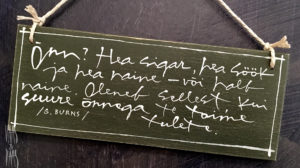 Õnn? Hea sigar, hea söök
ja hea naine – või halb
naine. Oleneb sellest, kui
suure õnnega te toime
tulete.
/G. BURNS/